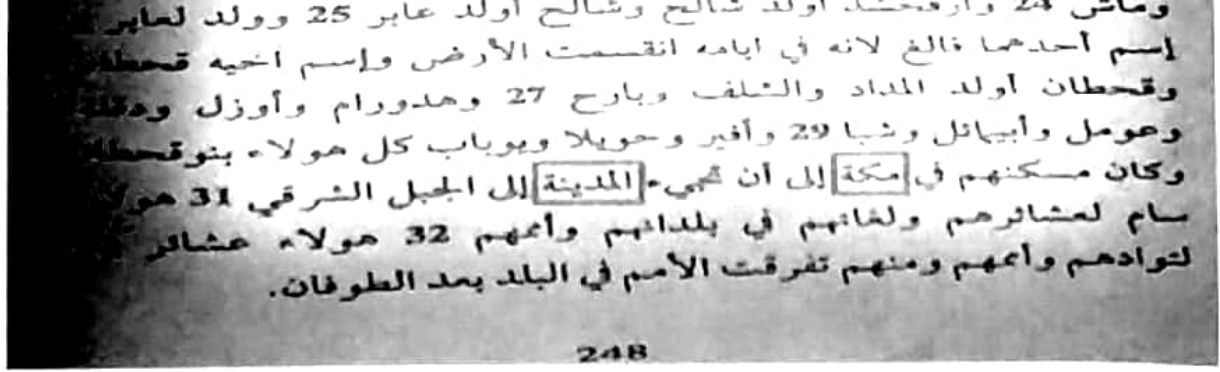 وماش 24 وارفخشد أولد شالح وشالح أولد عابر 25 وولد لعابر
إسم أحدهما فالغ لانه في ايامه انقسمت الأرض وإسم اخيه قحطان
وقحطان أولد المداد والشلف وبارح 27 وهدورام وأوزل ودقلة
وعومل وأبيمائل وشبا 29 وأفير وحويلا ويوباب كل هولاء بنوقحطان
وكان مسكنهم في مكة إلى أن تجيء المدينة إلى الجبل الشرقي 31 هولاء
سام لعشائرهم ولغاتهم في بلدانهم وأممهم 32 هولاء عشائر
لتوادهم وأممهم ومنهم تفرقت الأمم في البلد بعد الطوفان.
248